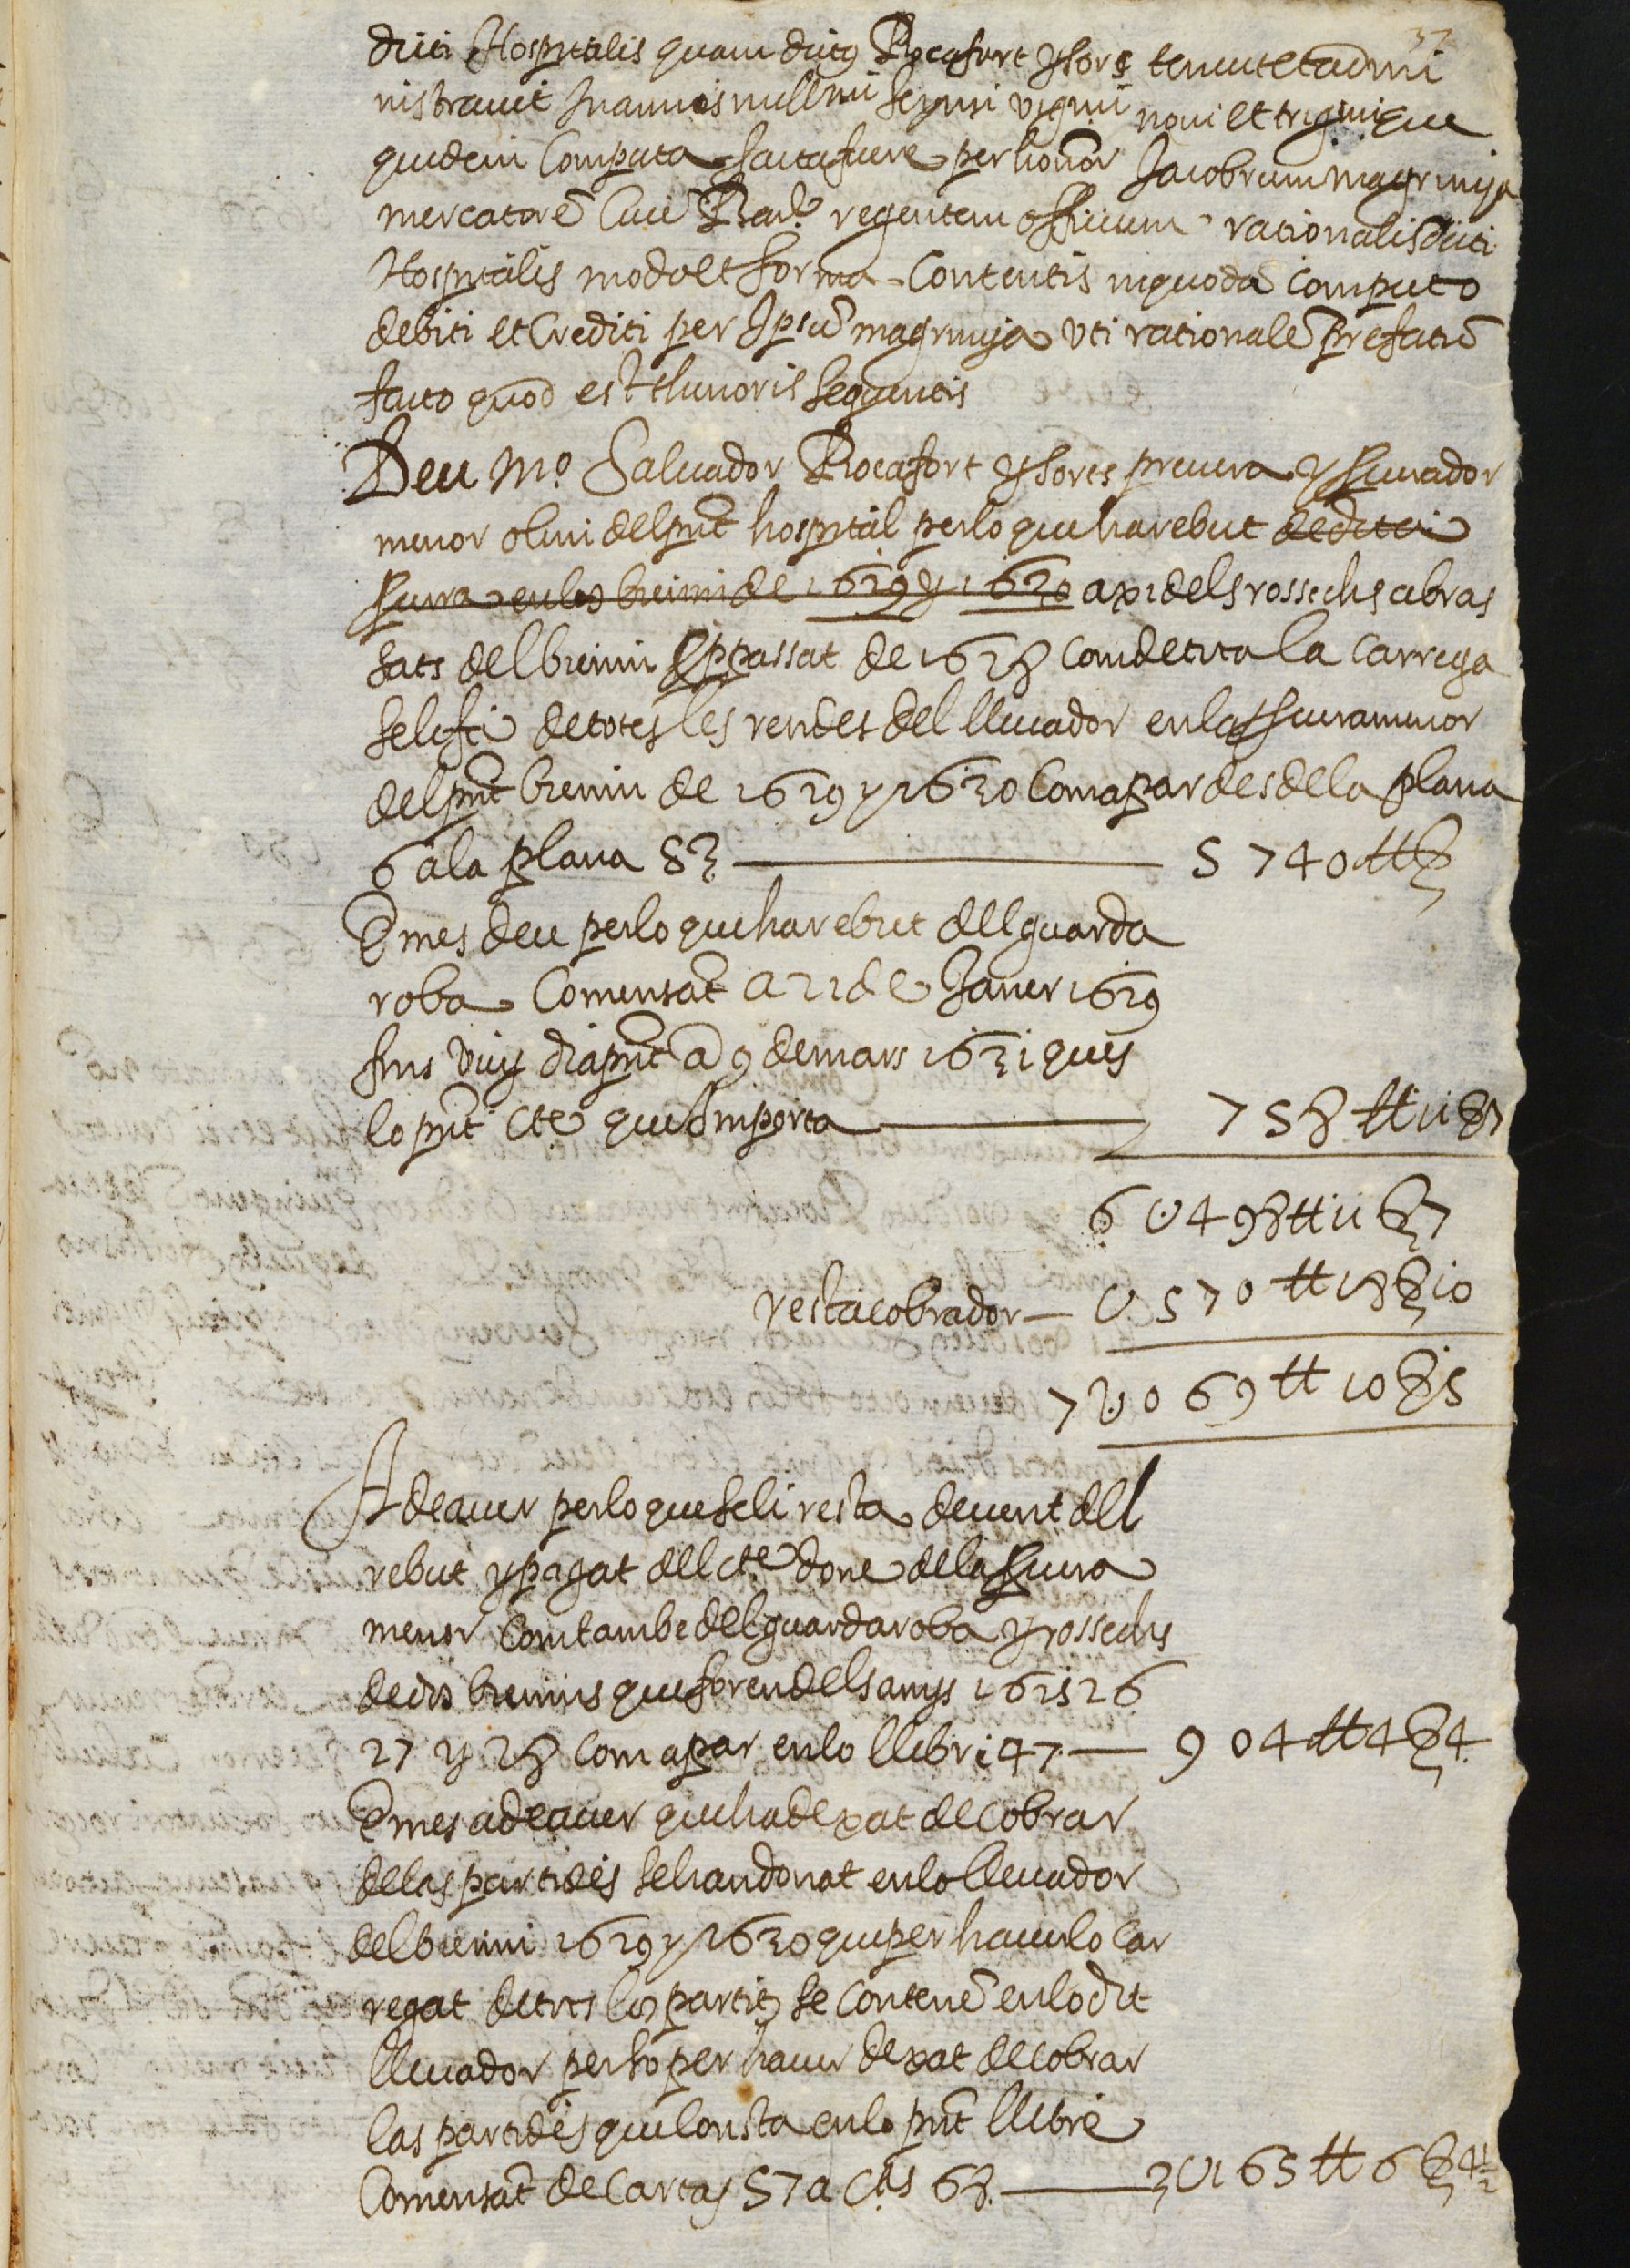 dicti Hospitalis quam dictus Rocafort ysores tenuit et admi
nistravit in annis millmi sexmi vigmi novi et trigmi que
quidem Computa facta fuere per honor Jacobum magrinya
mercatore Cive Barl regentem officium rationalis dicti
Hospitalis modo et forma Contentis in quoda computo
debiti et Crediti per Ipsu magrinya uti rationale prefatu
facto quod est thenoris sequentis
Deu Mo Salvador Rocafort y sores prevere y scurador
menor olim del pnt hospital per lo que ha rebut de dita
scura en los bienni de 1629 y 1630 axi dels rossechs abras
sats del bienni pp passat de 1628 com de tota la Carrega
seli fa de totes les rendes del llevador en la scura menor
del pnt bienni de 1629 y 1630 Com apar des de la plana
6 a la plana 83 — 5740 ₶ ß
E mes deu per lo que ha rebut del guarda
roba Comensat a 21 de Janer 1629
fins vuy dia pnt a 9 de mars 1631 que es
lo pnt cte que Importa — 758 ₶ 11 ß 7
6 U 498 ₶ 11 ß 7
resta cobrador — U 570 ₶ 18 ß 10
7 U 069 ₶ 10 ß 5
A de aver per lo que seli resta devent del
rebut y pagat del cte done de la scura
menor Com tambe del guardaroba y rossechs
de dos biennis que foren dels anys 1625 26
27 y 28 Com apar en lo llibre 147 — 904 ₶ 4 ß 4
E mes a de aver que ha dexat de Cobrar
de las partides se han donat en lo llevador
del bienni 1629 y 1630 que per haverlo Car
regat de totes les partis se Contene en lo dit
llevador per so per haver dexat de cobrar
las partides que consta en lo pnt llibre
Comensat de Cartas 57 a Cas 68 — 2 U 165 ₶ 6 ß 4 1/2